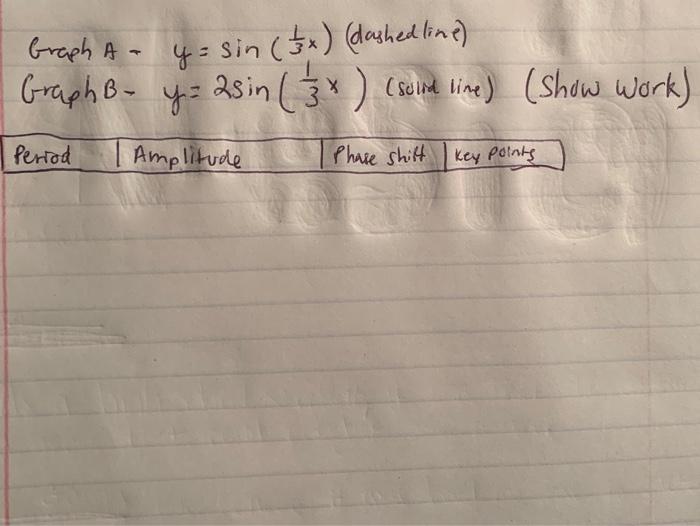 Graph A - y = sin (1/3 x) (dashed line)
Graph B - y = 2sin (1/3 x) (solid line) (Show Work)
Period | Amplitude | Phase shift | Key Points